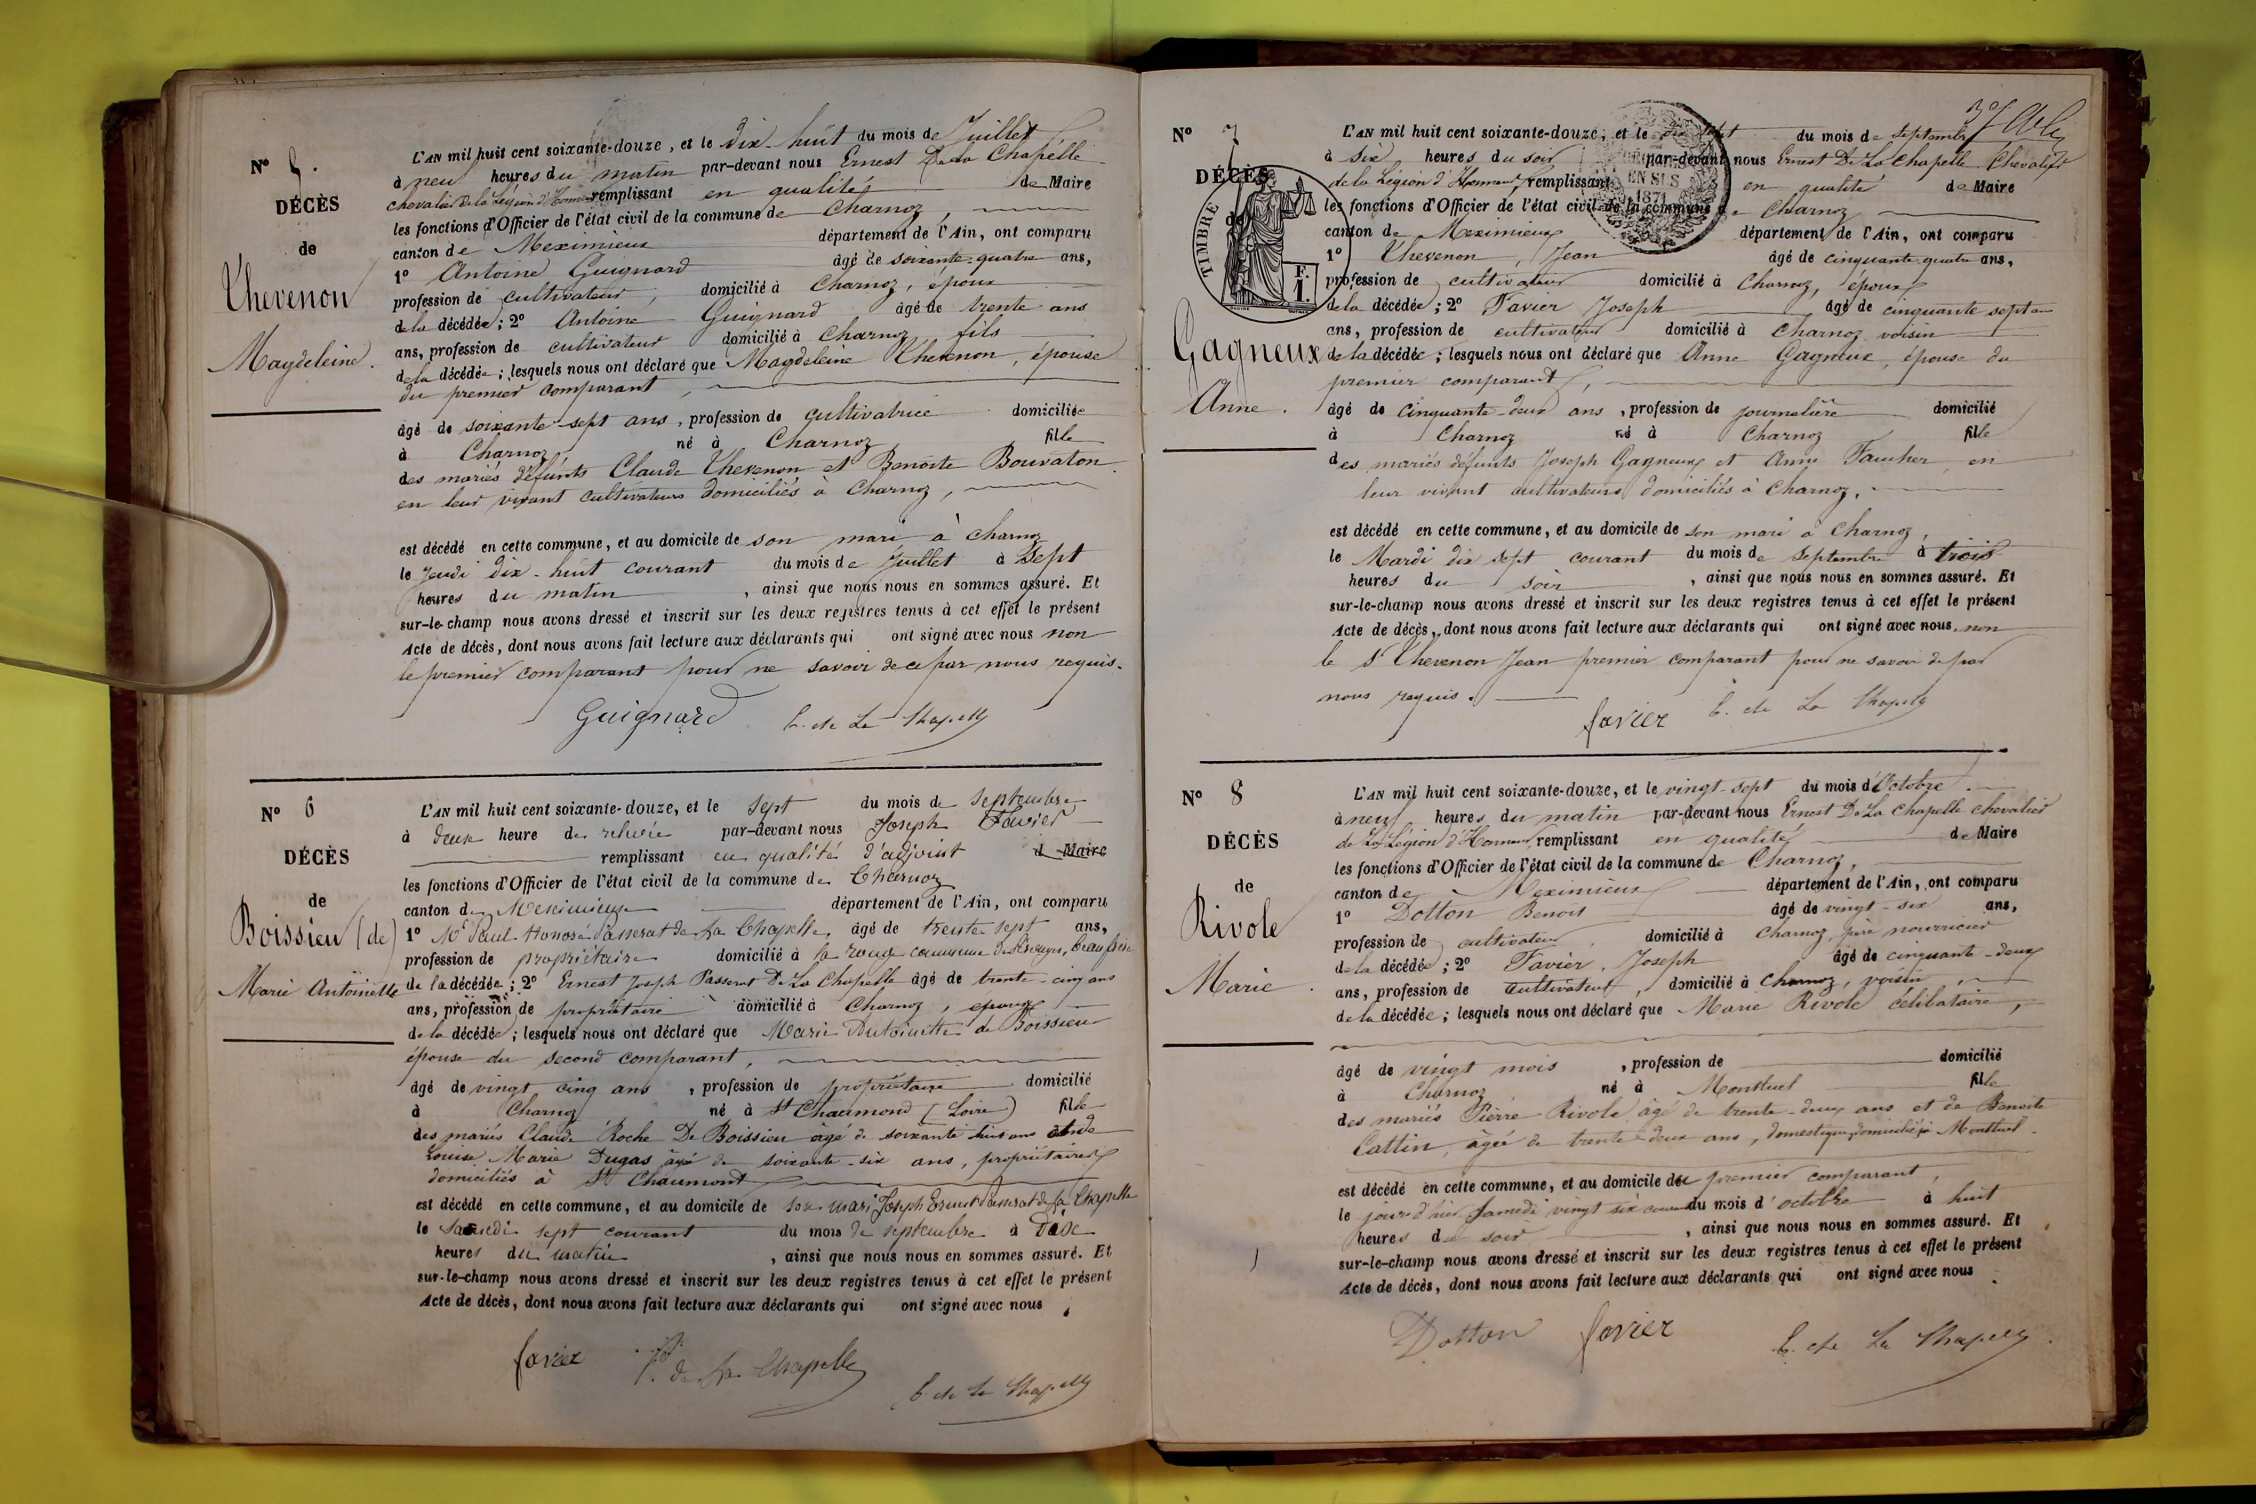 N° 5.
DÉCÈS
de
Thevenon
Magdeleine.
L'AN mil huit cent soixante-douze, et le dix-huit du mois de Juillet
à neuf heures du matin par-devant nous Ernest De La Chapelle
chevalier de la Légion d'Honneur remplissant en qualité de Maire
les fonctions d'Officier de l'état civil de la commune de Charnoz
canton de Meximieux département de l'Ain, ont comparu
1° Antoine Guignard âgé de soixante-quatre ans,
profession de cultivateur, domicilié à Charnoz, époux
de la décédée; 2° Antoine Guignard âgé de trente ans
ans, profession de cultivateur domicilié à Charnoz fils
de la décédée; lesquels nous ont déclaré que Magdeleine Thevenon, épouse
du premier comparant,
âgé de soixante-sept ans, profession de cultivatrice domiciliée
à Charnoz, né à Charnoz fille
des mariés défunts Claude Thevenon et Benoite Bouvaton
en leur vivant cultivateurs domiciliés à Charnoz,
est décédé en cette commune, et au domicile de son mari à Charnoz
le Jeudi dix-huit courant du mois de Juillet à Sept
heures du matin, ainsi que nous nous en sommes assuré. Et
sur-le-champ nous avons dressé et inscrit sur les deux registres tenus à cet effet le présent
Acte de décès, dont nous avons fait lecture aux déclarants qui ont signé avec nous non
le premier comparant pour ne savoir de ce par nous requis.
Guignard E. de La Chapelle
N° 6
DÉCÈS
de
Boissieu (de)
Marie Antoinette
L'AN mil huit cent soixante-douze, et le sept du mois de septembre
à deux heure de relevée par-devant nous Joseph Favier
remplissant en qualité d'adjoint d Maire
les fonctions d'Officier de l'état civil de la commune de Charnoz
canton de Meximieux département de l'Ain, ont comparu
1° Mr Paul Honoré Passerat de La Chapelle, âgé de trente sept ans,
profession de propriétaire domicilié à la rouge commune de
de la décédée; 2° Ernest Joseph Passerat De La Chapelle âgé de trente-cinq ans
ans, profession de propriétaire domicilié à Charnoz, epoux
de la décédée; lesquels nous ont déclaré que Marie Antoinette de Boissieu
épouse du second comparant,
âgé de vingt cinq ans, profession de propriétaire domicilié
à Charnoz né à St Chaumond (Loire) fille
des mariés Claude Roche De Boissieu âgé de soixante huit ans et de
Louise Marie Dugas âgé de soixante-six ans, propriétaires
domiciliés à St Chaumont
est décédé en cette commune, et au domicile de son mari Joseph Ernest Passerat de La Chapelle
le samedi sept courant du mois de septembre à
heures du matin, ainsi que nous nous en sommes assuré. Et
sur-le-champ nous avons dressé et inscrit sur les deux registres tenus à cet effet le présent
Acte de décès, dont nous avons fait lecture aux déclarants qui ont signé avec nous.
favier P. de La Chapelle E. de La Chapelle
37
N° 7
DÉCÈS
de
Gagneux
Anne.
TIMBRE
F.
1.
EN SUS
1871
L'AN mil huit cent soixante-douze, et le dix sept du mois de septembre
à six heures du soir par-devant nous Ernest De La Chapelle Chevalier
de la Légion d'Honneur remplissant en qualité de Maire
les fonctions d'Officier de l'état civil de la commune de Charnoz
canton de Meximieux département de l'Ain, ont comparu
1° Thevenon, Jean âgé de cinquante-quatre ans,
profession de cultivateur domicilié à Charnoz, époux
de la décédée; 2° Favier Joseph âgé de cinquante sept ans
ans, profession de cultivateur domicilié à Charnoz voisin
de la décédée; lesquels nous ont déclaré que Anne Gagneux, épouse du
premier comparant,
âgé de cinquante-deux ans, profession de journalière domicilié
à Charnoz né à Charnoz fille
des mariés défunts Joseph Gagneux et Anne Faucher en
leur vivant cultivateurs domiciliés à Charnoz,
est décédé en cette commune, et au domicile de son mari à Charnoz,
le Mardi dix sept courant du mois de septembre à trois
heures du soir, ainsi que nous nous en sommes assuré. Et
sur-le-champ nous avons dressé et inscrit sur les deux registres tenus à cet effet le présent
Acte de décès, dont nous avons fait lecture aux déclarants qui ont signé avec nous, non
le s Thevenon Jean premier comparant pour ne savoir de par
nous requis.
favier E. de La Chapelle
N° 8
DÉCÈS
de
Rivole
Marie.
L'AN mil huit cent soixante-douze, et le vingt-sept du mois d'Octobre
à neuf heures du matin par-devant nous Ernest De La Chapelle chevalier
de La Légion d'Honneur, remplissant en qualité de Maire
les fonctions d'Officier de l'état civil de la commune de Charnoz,
canton de Meximieux département de l'Ain, ont comparu
1° Dotton Benoit âgé de vingt-six ans,
profession de cultivateur, domicilié à Charnoz, père nourricier
de la décédée; 2° Favier, Joseph âgé de cinquante-deux
ans, profession de cultivateur, domicilié à Charnoz, voisin
de la décédée; lesquels nous ont déclaré que Marie Rivole célibataire,
âgé de vingt mois, profession de domicilié
à Charnoz né à Montluel fille
des mariés Pierre Rivole âgé de trente-deux ans et de Benoite
Cattin, âgée de trente-deux ans, domestiques domiciliés à Montluel.
est décédé en cette commune, et au domicile du premier comparant,
le jour d'hier Samedi vingt six courant du mois d'octobre à huit
heures du soir, ainsi que nous nous en sommes assuré. Et
sur-le-champ nous avons dressé et inscrit sur les deux registres tenus à cet effet le présent
Acte de décès, dont nous avons fait lecture aux déclarants qui ont signé avec nous.
Dotton favier E. de La Chapelle